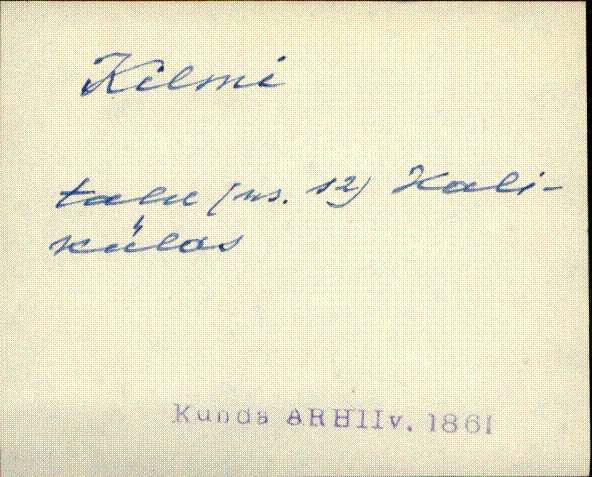 Kilmi
talu (ns. 12) Kali-
külas
Kunda ARHIIv. 1861